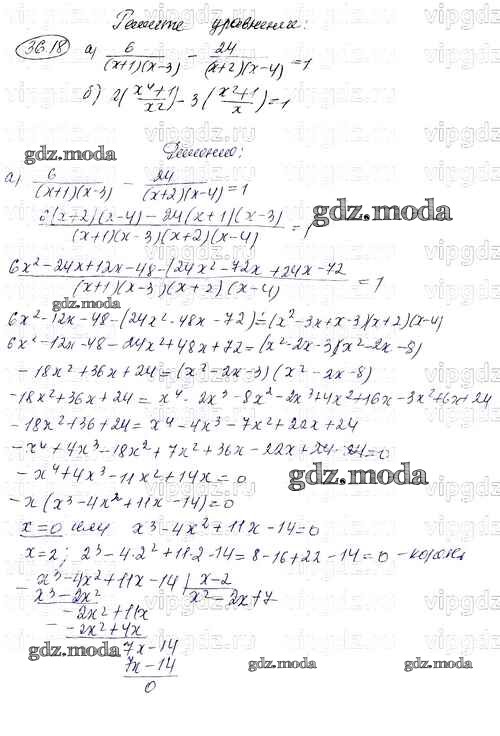 Решите уравнения:
36.18 а) 6/((x+1)(x-3)) - 24/((x+2)(x-4)) = 1
б) 2((x⁴+1)/x²) - 3((x²+1)/x) = 1
Решение:
а) 6/((x+1)(x-3)) - 24/((x+2)(x-4)) = 1
(6(x+2)(x-4) - 24(x+1)(x-3))/((x+1)(x-3)(x+2)(x-4)) = 1
(6x²-24x+12x-48-(24x²-72x+24x-72)/((x+1)(x-3)(x+2)(x-4)) = 1
6x²-12x-48-(24x²-48x-72)=(x²-3x+x-3)(x+2)(x-4)
6x²-12x-48-24x²+48x+72=(x²-2x-3)(x²-2x-8)
-18x²+36x+24=(x²-2x-3)(x²-2x-8)
-18x²+36x+24=x⁴-2x³-8x²-2x³+4x²+16x-3x²+6x+24
-18x²+36+24=x⁴-4x³-7x²+22x+24
-x⁴+4x³-18x²+7x²+36x-22x+24-24=0
-x⁴+4x³-11x²+14x=0
-x(x³-4x²+11x-14)=0
x=0 или x³-4x²+11x-14=0
x=2; 2³-4·2²+11·2-14=8-16+22-14=0 - корень
x³-4x²+11x-14 | x-2
x³-2x² x²-2x+7
-2x²+11x
-2x²+4x
7x-14
7x-14
0
gdz.moda
gdz.moda
gdz.moda
gdz.moda
gdz.moda
gdz.moda
gdz.moda
vipgdz.ru